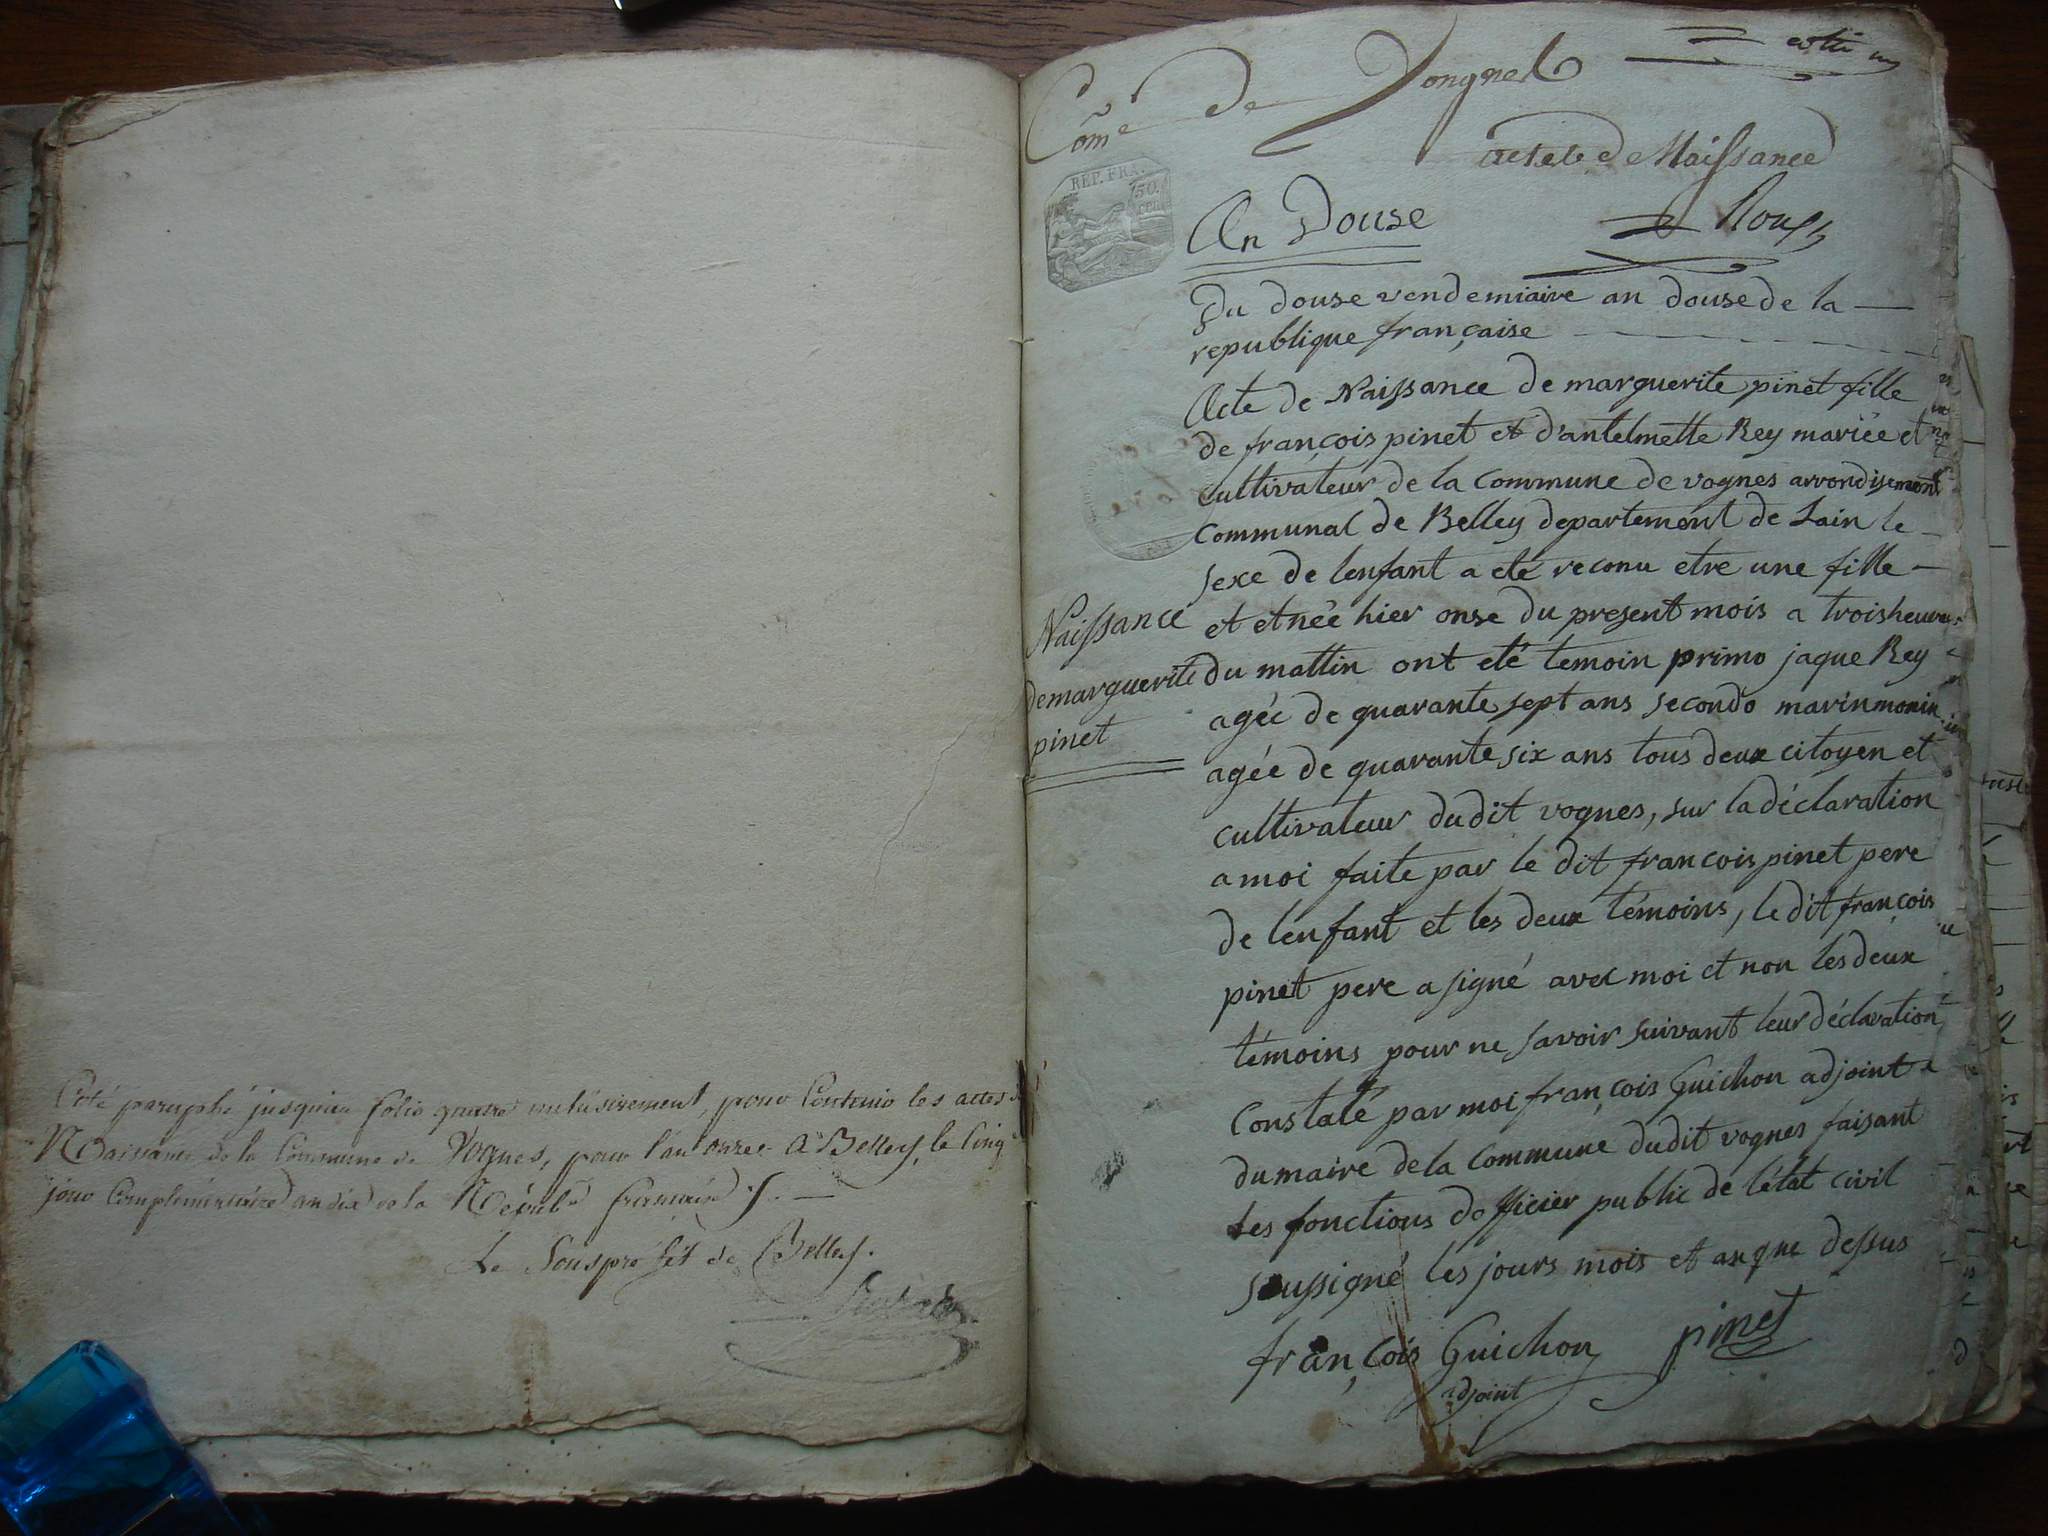 Coté paraphé jusquau folio quatre inclusivement, pour Contenir les actes de
Naissance de la Commune de Vognes, pour l'an onze. A Belley, le Cinq
jour Complementaire an dix de la Répub.e francaise
Le Souspréfet de Belley.
Com̃e de Vongnes
acte de Naissance
REP. FRA.
50.
An Douse
Du douse vendemiaire an douse de la
republique française
Acte de Naissance de marguerite pinet fille
de françois pinet et d'antelmette Rey mariée et
Cultivateur de la Commune de vognes arrondisement
Communal de Belley departement de Lain le
sexe de lenfant a eté reconu etre une fille
et et née hier onse du present mois a trois heures
du mattin ont eté temoin primo jaque Rey
agée de quarante sept ans secondo marin monin
agée de quarante six ans tous deux citoyen et
cultivateur dudit vognes, sur la déclaration
a moi faite par le dit francois pinet pere
de lenfant et les deux témoins, le dit françois
pinet pere a signé avec moi et non les deux
témoins pour ne savoir suivant leur déclaration
Constaté par moi françois Guichon adjoint
du maire de la Commune dudit vognes faisant
les fonctions dofficier public de létat civil
soussigné les jours mois et an que dessus
françois Guichon pinet
adjoint
Naissance
de marguerite
pinet